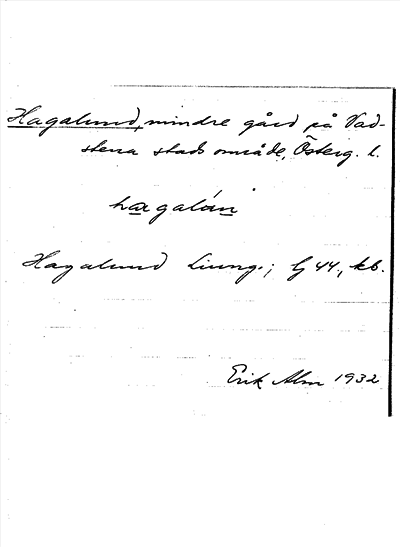 Hagalund, mindre gård på Vad-
stena stads område, Österg. l.
hagalún
Hagalund Ljung.; G 44, kb.
Erik Alm 1932